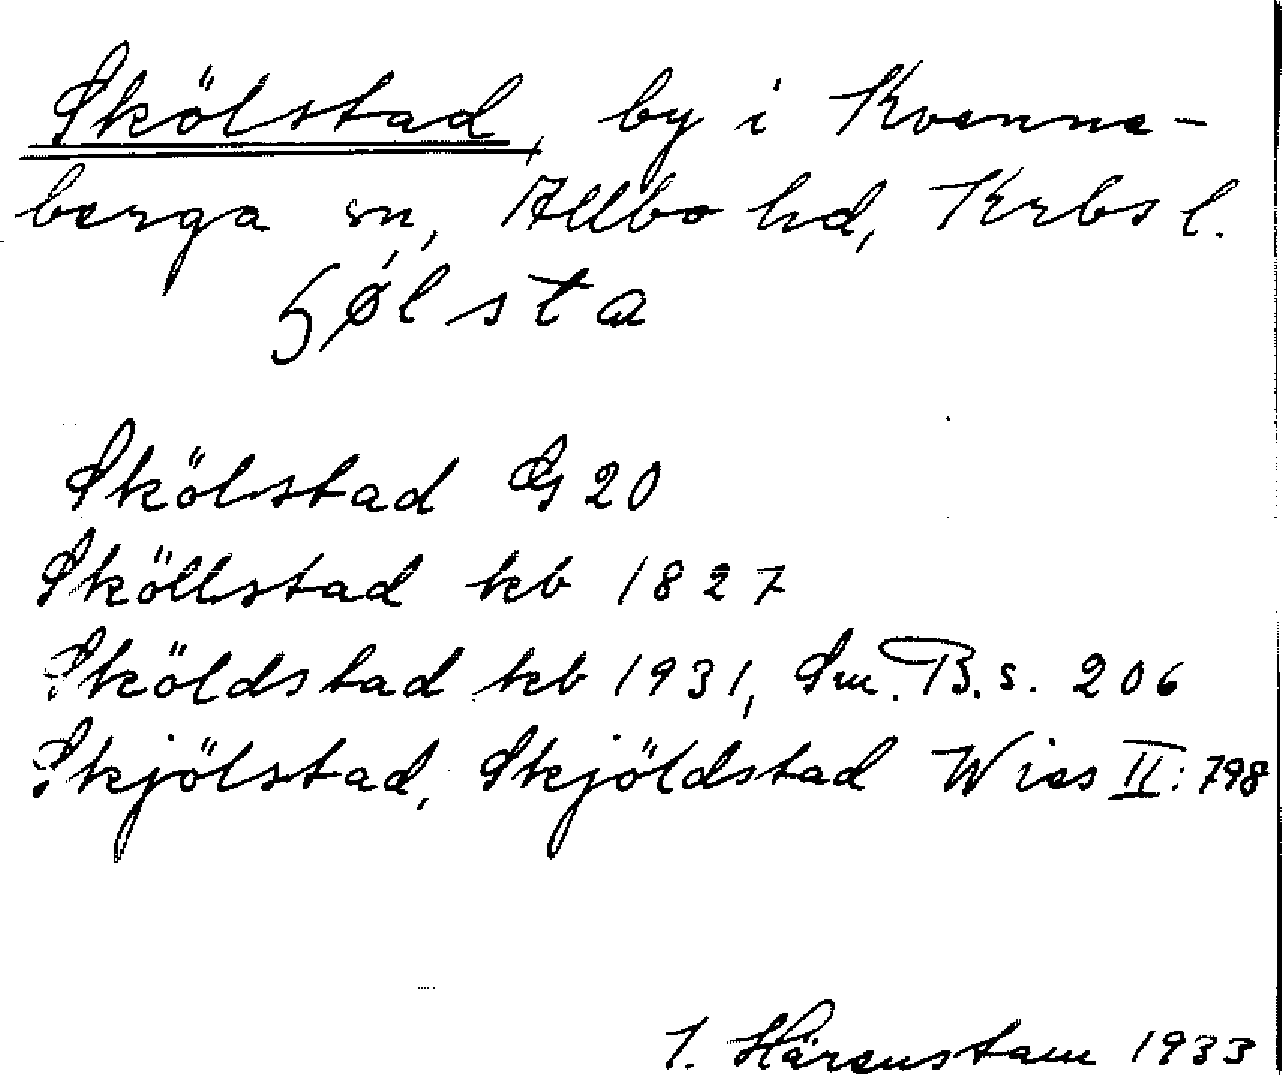 Skölstad, by i Kvenne-
berga sn, Allbo hd, Krbs l.
ʃø̀lsta
Skölstad G 20
Sköllstad kb 1827
Sköldstad kb 1931, Sm. B. s. 206
Skjölstad, Skjöldstad Wies II: 798
I. Härenstam 1933